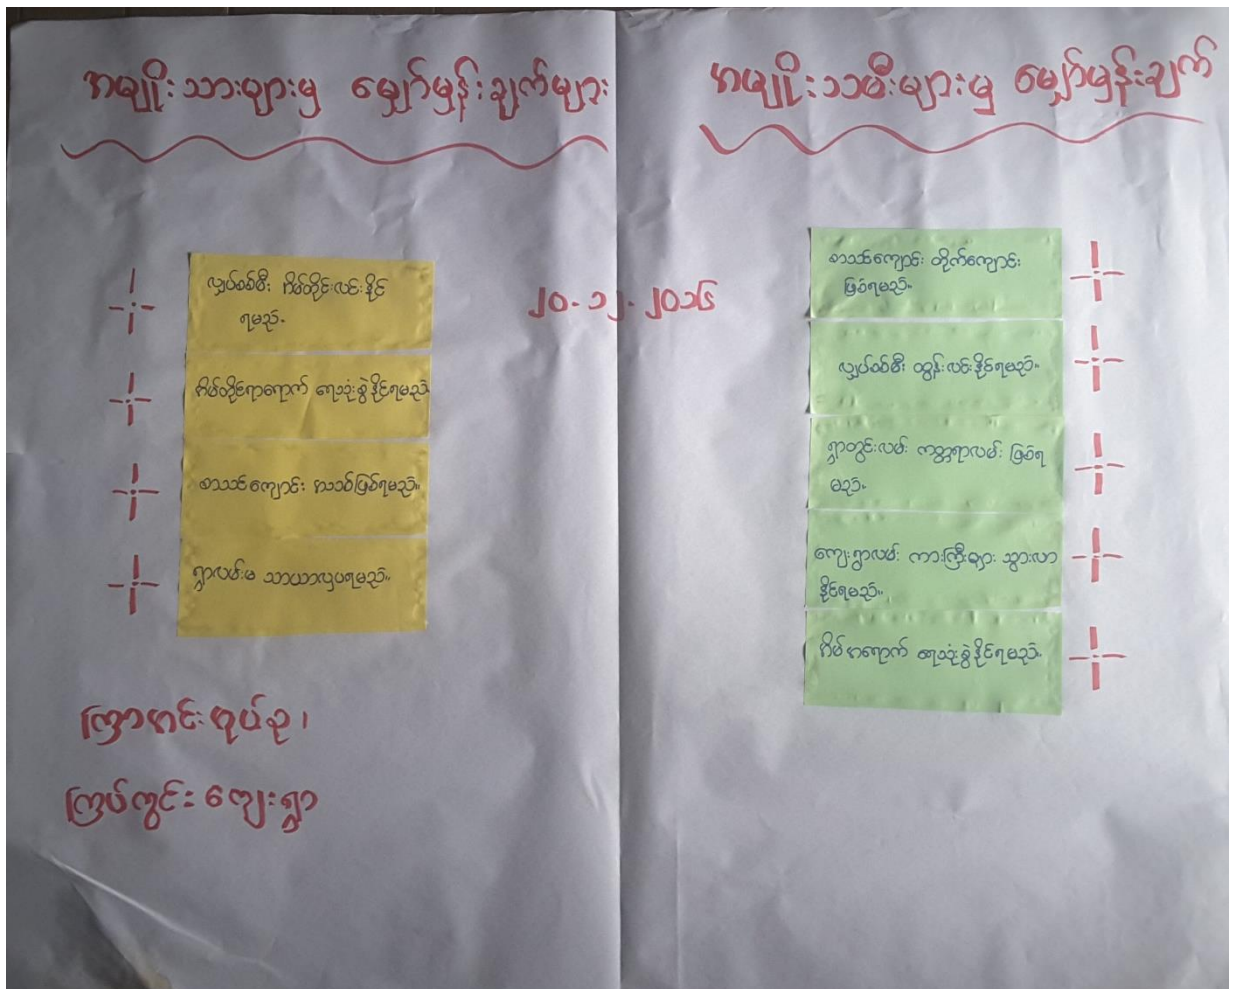 အမျိုးသားများမှ မျှော်မှန်းချက်များ
လျှပ်စစ်မီး အိမ်တိုင်းလင်းနိုင်
ရမည်။
အိမ်တိုင်ရာရောက် ရေသုံးစွဲနိုင်ရမည်
စာသင်ကျောင်း အသစ်ဖြစ်ရမည်။
ရွာလမ်းမ သာယာလှပရမည်။
ကြာအင်းအုပ်စု၊
ကြပ်ကွင်းကျေးရွာ
၂၀-၁၂-၂၀၁၆
အမျိုးသမီးများမှ မျှော်မှန်းချက်
စာသင်ကျောင်း တိုက်ကျောင်း
ဖြစ်ရမည်။
လျှပ်စစ်မီး ထွန်းလင်းနိုင်ရမည်။
ရွာတွင်းလမ်း ကတ္တရာလမ်း ဖြစ်ရ
မည်။
ကျေးရွာလမ်း ကားကြီးများ သွားလာ
နိုင်ရမည်။
အိမ်အရောက် ရေသုံးစွဲနိုင်ရမည်။